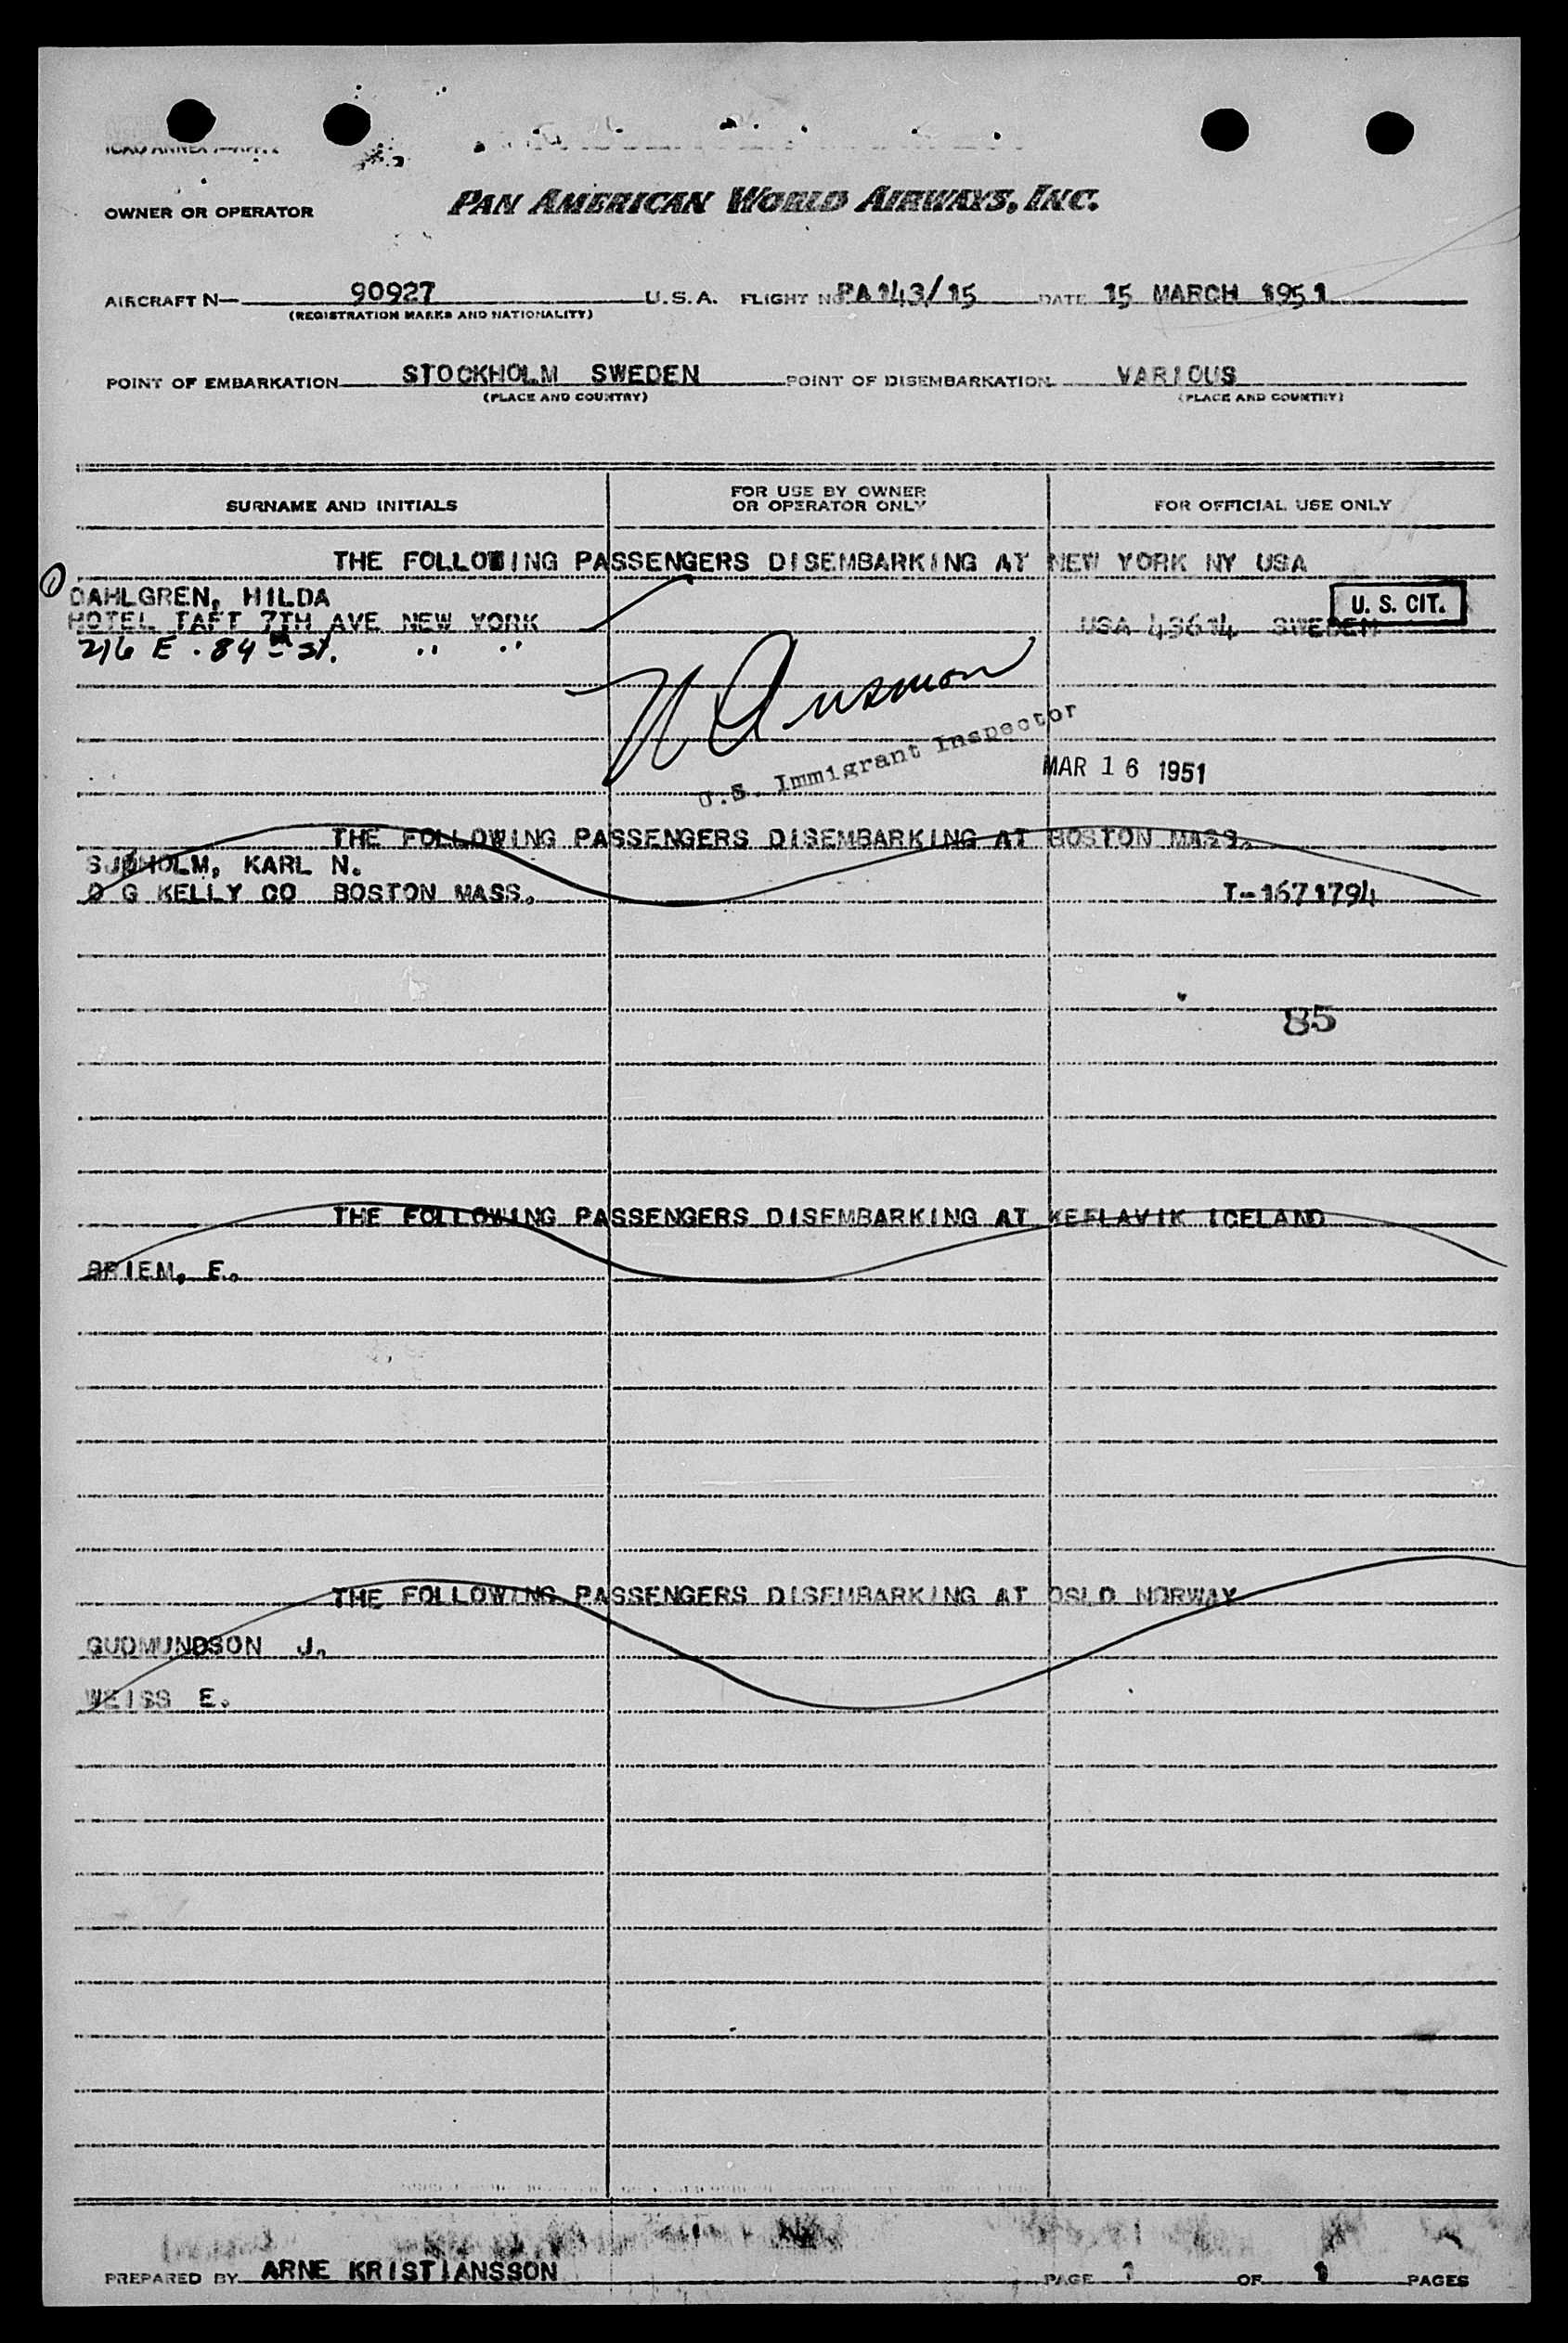 OWNER OR OPERATOR PAN AMERICAN WORLD AIRWAYS, INC.
AIRCRAFT N— 90927 U.S.A. FLIGHT NO PA143/15 DATE 15 MARCH 1951
(REGISTRATION MARKS AND NATIONALITY)
POINT OF EMBARKATION STOCKHOLM SWEDEN POINT OF DISEMBARKATION VARIOUS
(PLACE AND COUNTRY) (PLACE AND COUNTRY)
SURNAME AND INITIALS FOR USE BY OWNER OR OPERATOR ONLY FOR OFFICIAL USE ONLY
THE FOLLOWING PASSENGERS DISEMBARKING AT NEW YORK NY USA
1 DAHLGREN, HILDA U. S. CIT.
HOTEL TAFT 7TH AVE NEW YORK USA 43614 SWEDEN
216 E. 84th St. " "
U.S. Immigrant Inspector
MAR 16 1951
THE FOLLOWING PASSENGERS DISEMBARKING AT BOSTON MASS.
SJOHOLM, KARL N.
O G KELLY CO BOSTON MASS. T-1671794
85
THE FOLLOWING PASSENGERS DISEMBARKING AT KEFLAVIK ICELAND
BRIEM, E.
THE FOLLOWING PASSENGERS DISEMBARKING AT OSLO NORWAY
GUDMUNDSON J.
WEISS E.
PREPARED BY ARNE KRISTIANSSON PAGE 1 OF 1 PAGES